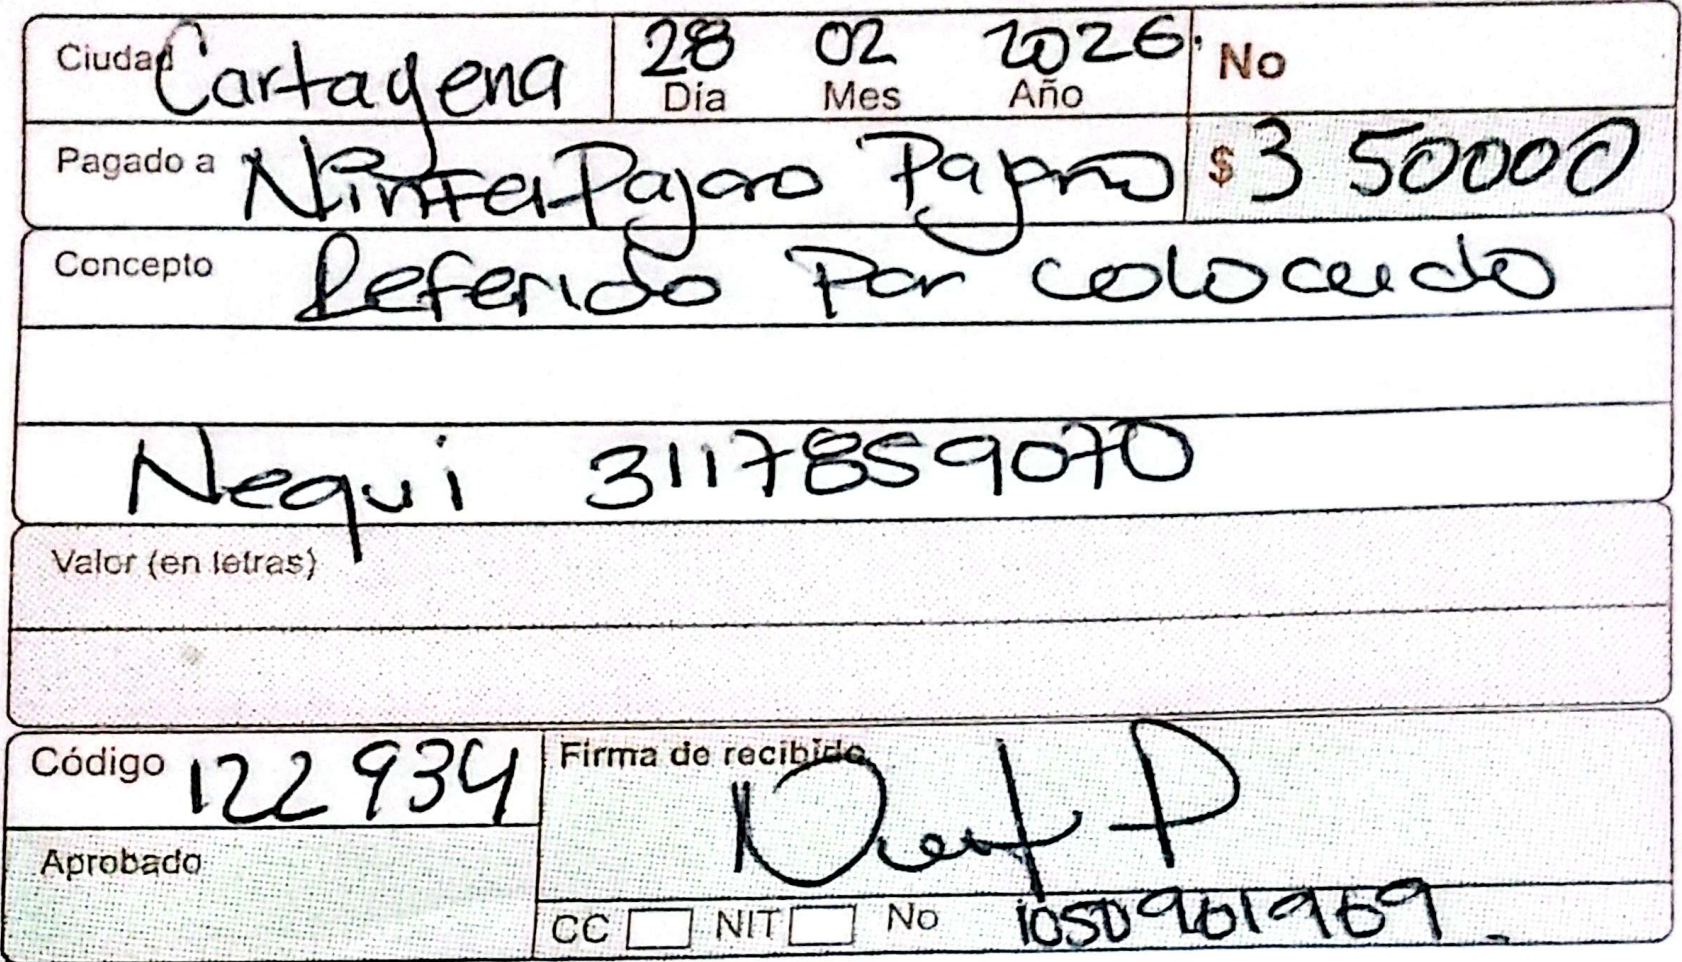 Ciudad Cartagena 28 02 2026. No
Día Mes Año
Pagado a Ninfa Pajaro Pajaro $ 350000
Concepto Referido Por colocado
Nequi 3117859070
Valor (en letras)
Código 122934 Firma de recibido
Aprobado
CC NIT No 1050901909